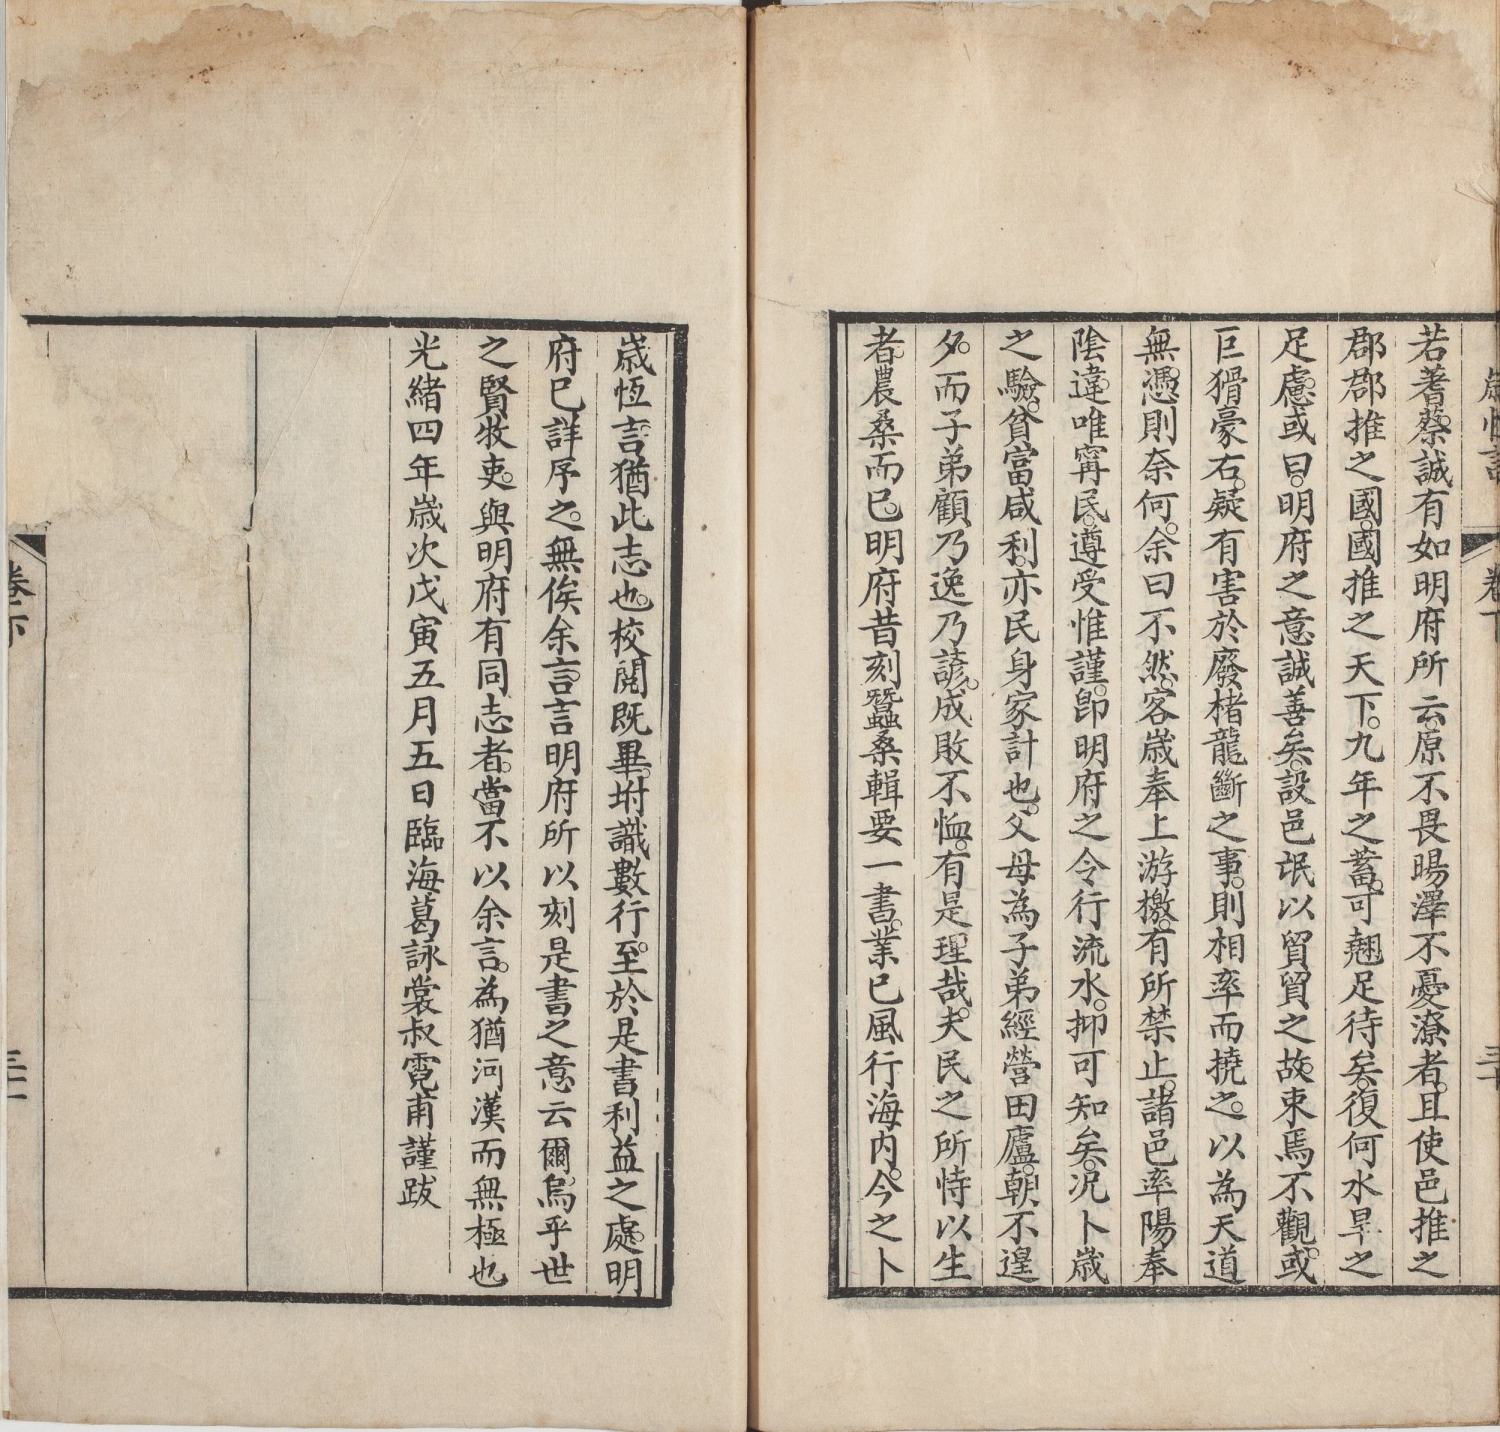 若蓍蔡誠有如明府所云原不畏暘澤不憂潦者且使邑推之
郡郡推之國國推之天下九年之蓄可翹足待矣復何水旱之
足慮或曰明府之意誠善矣設邑氓以貿貿之故束焉不觀或
巨猾豪右疑有害於廢楮龍斷之事則相率而撓之以為天道
無憑則奈何余曰不然客歲奉上游檄有所禁止諸邑率陽奉
陰違唯甯民遵受惟謹卽明府之令行流水抑可知矣况卜歲
之驗貧富咸利亦民身家計也父母為子弟經營田廬朝不遑
夕而子弟顧乃逸乃諺成敗不恤有是理哉夫民之所恃以生
者農桑而已明府昔刻蠶桑輯要一書業已風行海内今之卜
歲恆言猶此志也校閱既畢坿識數行至於是書利益之處明
府已詳序之無俟余言言明府所以刻是書之意云爾烏乎世
之賢牧吏與明府有同志者當不以余言為猶河漢而無極也
光緒四年歲次戊寅五月五日臨海葛詠裳叔霓甫謹跋
卷下
三十
卷下
三十一